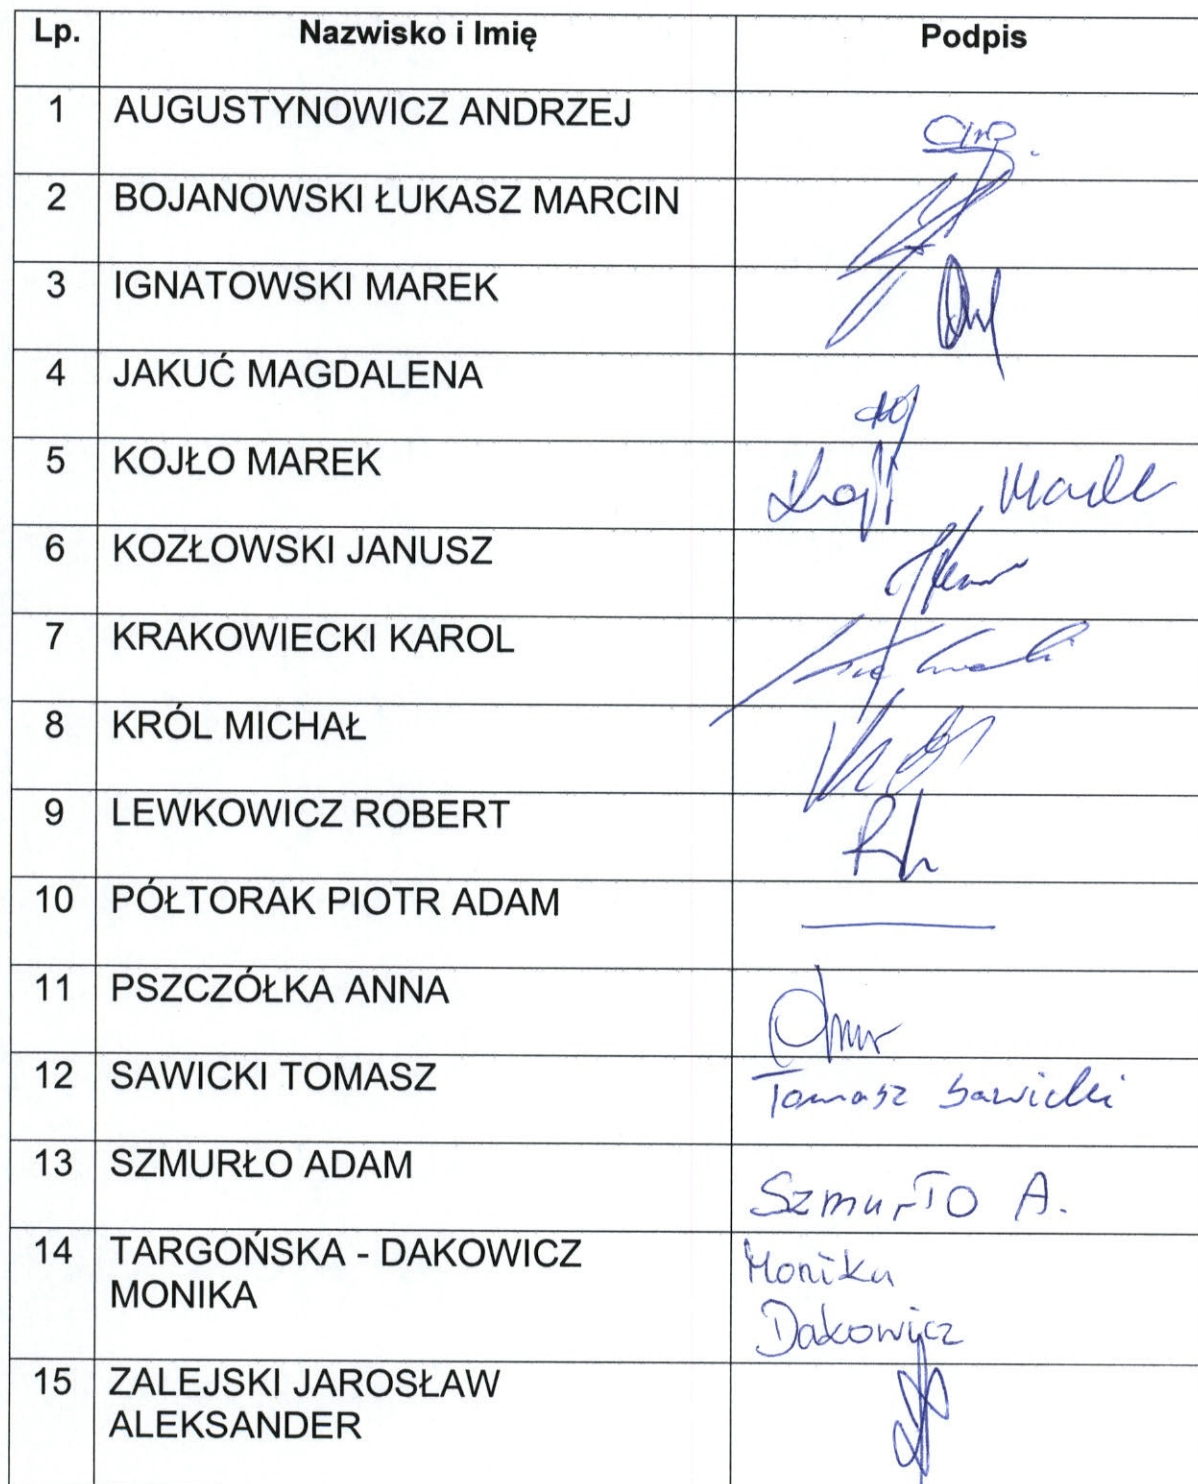 Lp. Nazwisko i Imię Podpis
1 AUGUSTYNOWICZ ANDRZEJ
2 BOJANOWSKI ŁUKASZ MARCIN
3 IGNATOWSKI MAREK
4 JAKUĆ MAGDALENA
5 KOJŁO MAREK
6 KOZŁOWSKI JANUSZ
7 KRAKOWIECKI KAROL
8 KRÓL MICHAŁ
9 LEWKOWICZ ROBERT
10 PÓŁTORAK PIOTR ADAM
11 PSZCZÓŁKA ANNA
12 SAWICKI TOMASZ Tomasz Sawicki
13 SZMURŁO ADAM Szmurło A.
14 TARGOŃSKA - DAKOWICZ Monika
MONIKA Dakowicz
15 ZALEJSKI JAROSŁAW
ALEKSANDER